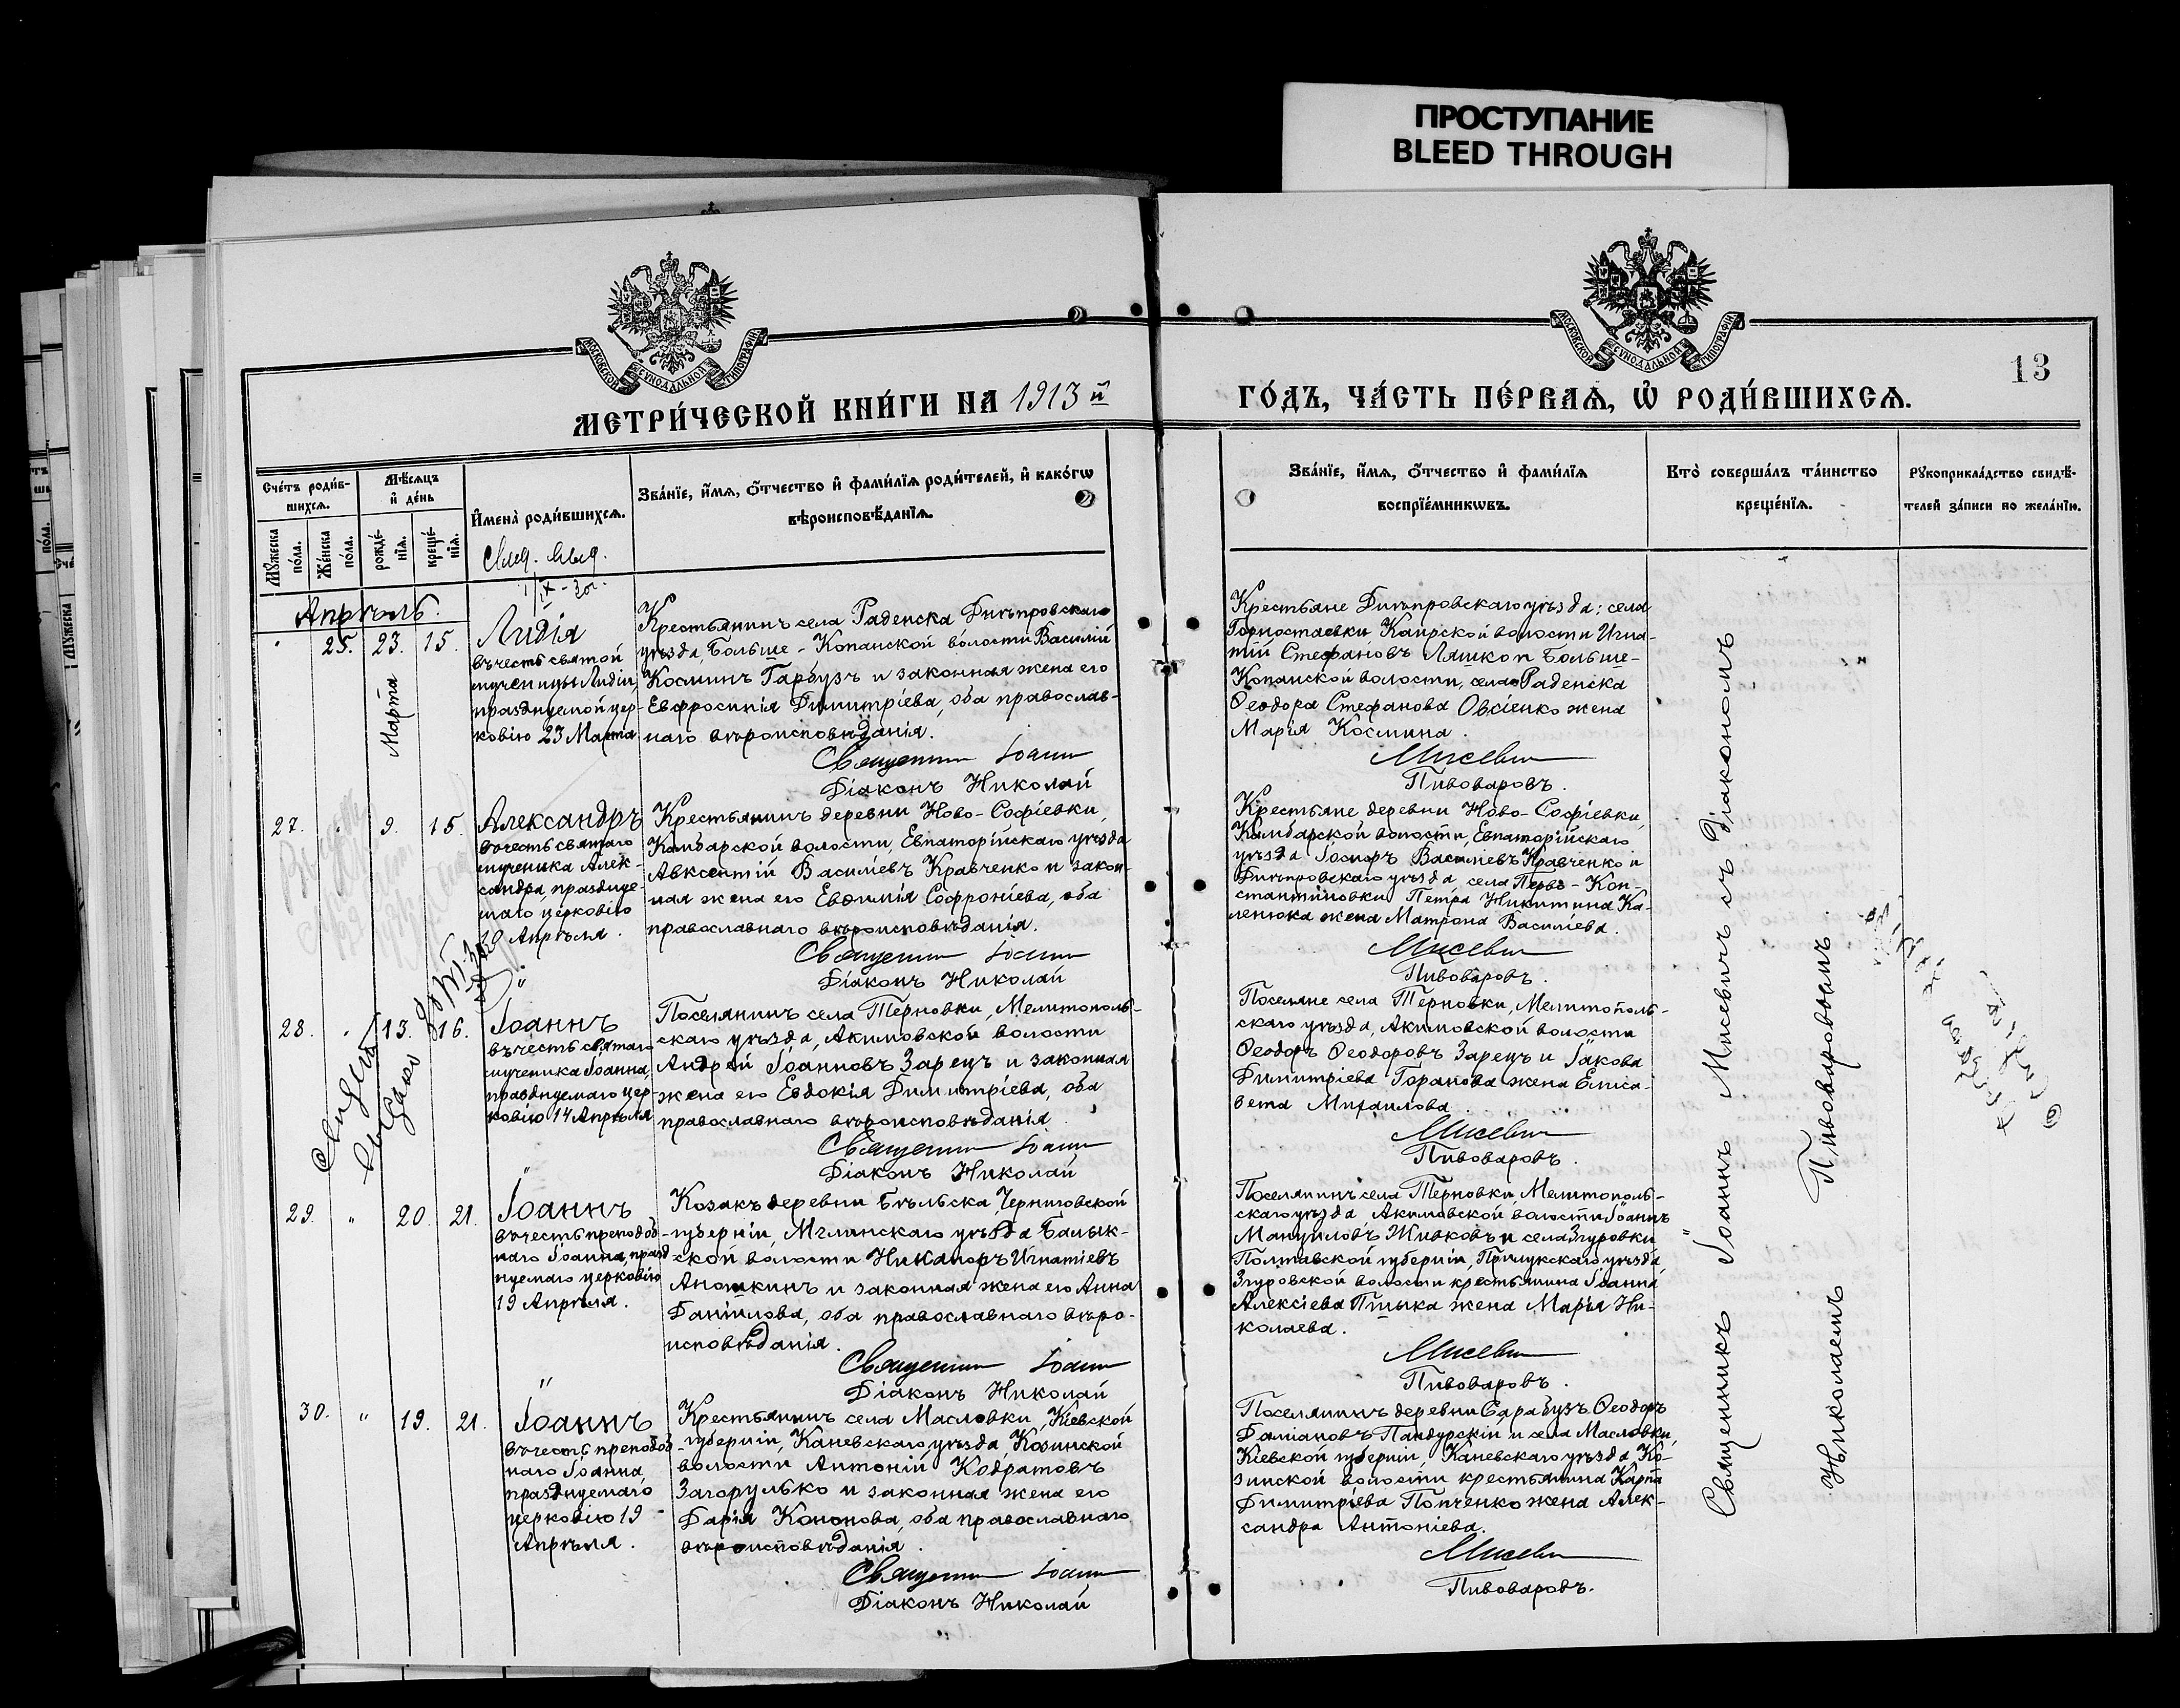 ПРОСТУПАНИЕ
BLEED THROUGH
МОСКОВСКОЙ СѴНОДАЛЬНОЙ ТИПОГРАФІИ
МОСКОВСКОЙ СѴНОДАЛЬНОЙ ТИПОГРАФІИ
13
МЕТРИ́ЧЕСКОЙ КНИ́ГИ НА 1913 й
ГО́ДЪ, ЧА́СТЬ ПЕ́РВАЯ, Ѡ РОДИ́ВШИХСЯ.
Сче́тъ роди́в-
шихся.
Мꙋ́жеска по́ла.
Же́нска по́ла.
Мѣ́сяцъ и де́нь
рожде́-нія.
креще́-нія.
Имена̀ роди́вшихся.
Зва́ніе, и́мя, о́тчество и фами́лія роди́телей, и како́гѡ
вѣроисповѣ́данія.
Зва́ніе, и́мя, о́тчество и фами́лія
воспріе́мникѡвъ.
Кто̀ соверша́лъ та́инство
креще́нія.
Рꙋкоприкла́дство свидѣ́-
телей за́писи по жела́нію.
Апрѣль.
" 25. 23. 15.
Марта
Лидія
въ честь святой
мученицы Лидіи,
празднуемой цер-
ковію 23 Марта
Крестьянинъ села Раденска Днѣпровскаго
уѣзда, Больше-Копанской волости Василій
Косминъ Гарбузъ и законная жена его
Евфросинія Димитріева, оба православ-
наго вѣроисповѣданія.
Священник Іоанн
Діаконъ Николай
Крестьяне Днѣпровскаго уѣзда: села
Горностаевки, Каирской волости Игна-
тій Стефановъ Ляшко и Больше-
Копанской волости, села Раденска
Ѳеодора Стефанова Овсіенко жена
Марія Космина.
Мисевич
Пивоваровъ.
27. " 9. 15.
Александръ
въ честь святаго
мученика Алек-
сандра, празднуе-
маго церковію
Апрѣля.
Крестьянинъ деревни Ново-Софіевки,
Камбарской волости, Евпаторійскаго уѣзда
Авксентій Василіевъ Кравченко и закон-
ная жена его Евѳимія Софроніева, оба
православнаго вѣроисповѣданія.
Священник Іоанн
Діаконъ Николай
Крестьяне деревни Ново-Софіевки,
Камбарской волости, Евпаторійскаго
уѣзда Іосифъ Василіевъ Кравченко и
Днѣпровскаго уѣзда, села Перво-Кон-
стантиновки Петра Никитина Ка-
ленюка жена Матрона Василіева.
Мисевич
Пивоваровъ.
28. " 13. 16.
"
Іоаннъ
въ честь святаго
мученика Іоанна,
празднуемаго цер-
ковію 14 Апрѣля
Поселянинъ села Терновки, Мелитополь-
скаго уѣзда, Акимовской волости
Андрей Іоанновъ Зарецъ и законная
жена его Евдокія Димитріева, оба
православнаго вѣроисповѣданія.
Священник Іоанн
Діаконъ Николай
Поселяне села Терновки, Мелитополь-
скаго уѣзда, Акимовской волости
Ѳеодоръ Ѳеодоровъ Зарецъ и Іакова
Димитріева Горанова жена Елиса-
вета Михаилова.
Мисевич
Пивоваровъ.
29. " 20. 21.
"
Іоаннъ
въ честь преподоб-
наго Іоанна, празд-
нуемаго церковію
19 Апрѣля.
Козакъ деревни Бѣльска, Черниговской
губерніи, Мглинскаго уѣзда Балык-
ской волости Никаноръ Игнатіевъ
Аношкинъ и законная жена его Анна
Даніилова, оба православнаго вѣро-
исповѣданія.
Священник Іоанн
Діаконъ Николай
Поселянинъ села Терновки, Мелитополь-
скаго уѣзда Акимовской волости Іоаннъ
Мануиловъ Живковъ и села Згуровки
Полтавской губерніи, Прилукскаго уѣзда,
Згуровской волости крестьянина Іоанна
Алексіева жена Марія Ни-
колаева.
Мисевич
Пивоваровъ.
30. " 19. 21.
"
Іоаннъ
въ честь преподоб-
наго Іоанна,
празднуемаго
церковію 19
Апрѣля.
Крестьянинъ села Масловки, Кіевской
губерніи, Каневскаго уѣзда, Козинской
волости Антоній Кодратовъ
Загорулько и законная жена его
Дарія Кононова, оба православнаго
вѣроисповѣданія.
Священник Іоанн
Діаконъ Николай
Поселянинъ деревни Сарабузъ Ѳеодоръ
Даміановъ Пандурскій и села Масловки,
Кіевской губерніи, Каневскаго уѣзда, Ко-
зинской волости крестьянина Карпа
Димитріева Попченко жена Алек-
сандра Антоніева.
Мисевич
Пивоваровъ.
Священникъ Іоаннъ Мисевичъ съ Діакономъ
Николаемъ Пивоваровымъ